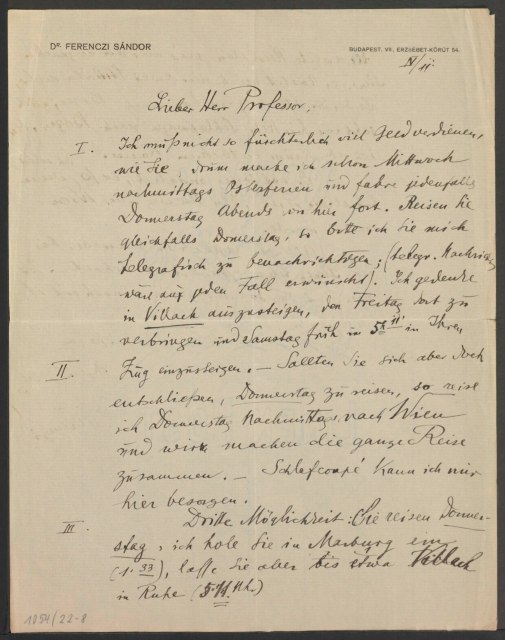 Dr. FERENCZI SÁNDOR
BUDAPEST, VII. ERZSÉBET-KÖRÚT 54.
IV/11.
Lieber Herr Professor,
I. Ich muß nicht so fürchterlich viel Geld verdienen,
wie Sie, drum mache ich schon Mittwoch
nachmittags Osterferien und fahre jedenfalls
Donnerstag Abends von hier fort. Reisen Sie
gleichfalls Donnerstag, so bitte ich Sie mich
telegrafisch zu benachrichtigen, (telegr. Nachricht
wäre auf jeden Fall erwünscht). Ich gedenke
in Villach auszusteigen, den Freitag dort zu
verbringen und Samstag früh in 5h 11' in Ihren
II Zug einzusteigen. — Sollten Sie sich aber doch
entschließen, Donnerstag zu reisen, so reise
ich Donnerstag Nachmittags nach Wien
und wir machen die ganze Reise
zusammen. — Schlafcoupé kann ich mir
hier besorgen.
III. Dritte Möglichkeit: Sie reisen Donners-
tag, ich hole Sie in Marburg ein
(1. 33), lasse Sie aber bis etwa Villach
in Ruhe (5.11 Uhr)
1054/22-8